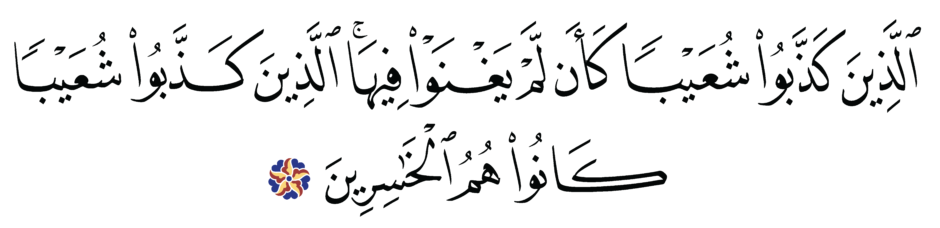 ٱلَّذِينَ كَذَّبُوا۟ شُعَيْبًا كَأَن لَّمْ يَغْنَوْا۟ فِيهَا ۚ ٱلَّذِينَ كَذَّبُوا۟ شُعَيْبًا
كَانُوا۟ هُمُ ٱلْخَـٰسِرِينَ